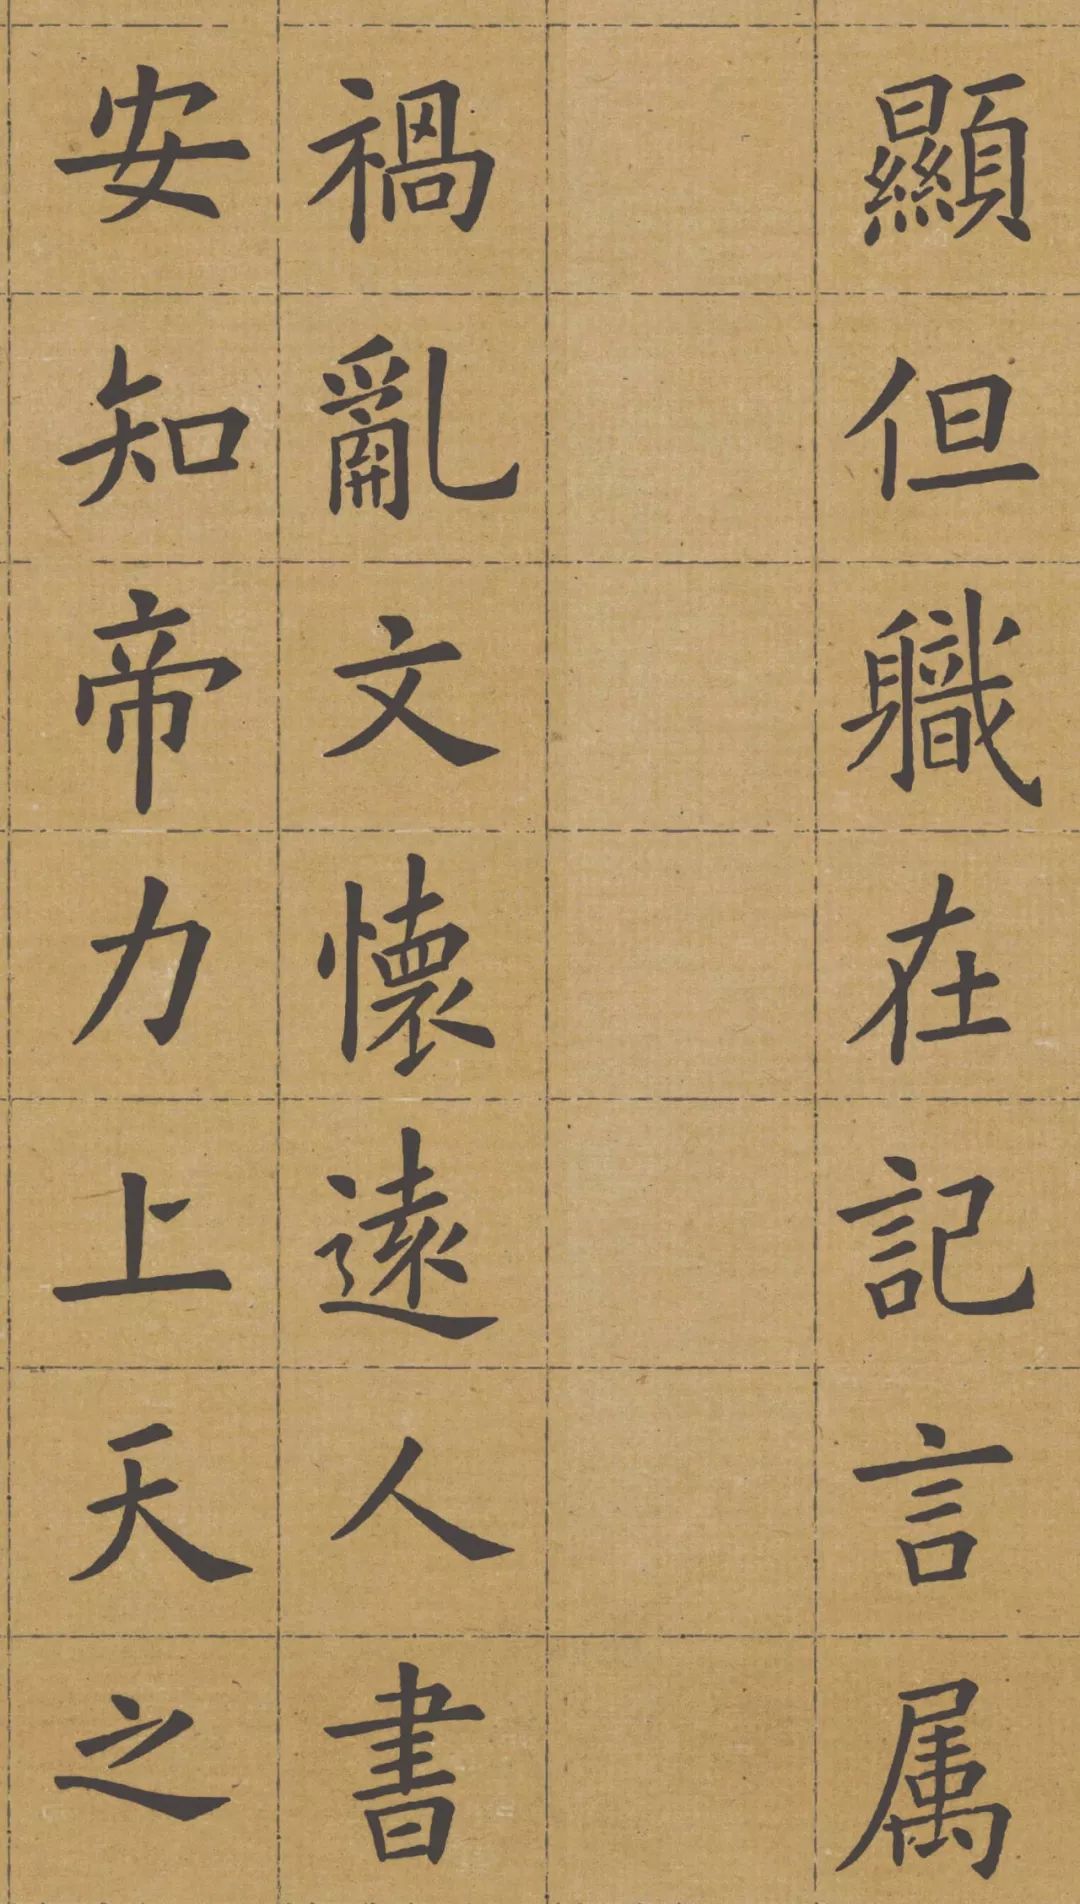 顯但職在記言属
禍亂文懐遠人書
安知帝力上天之